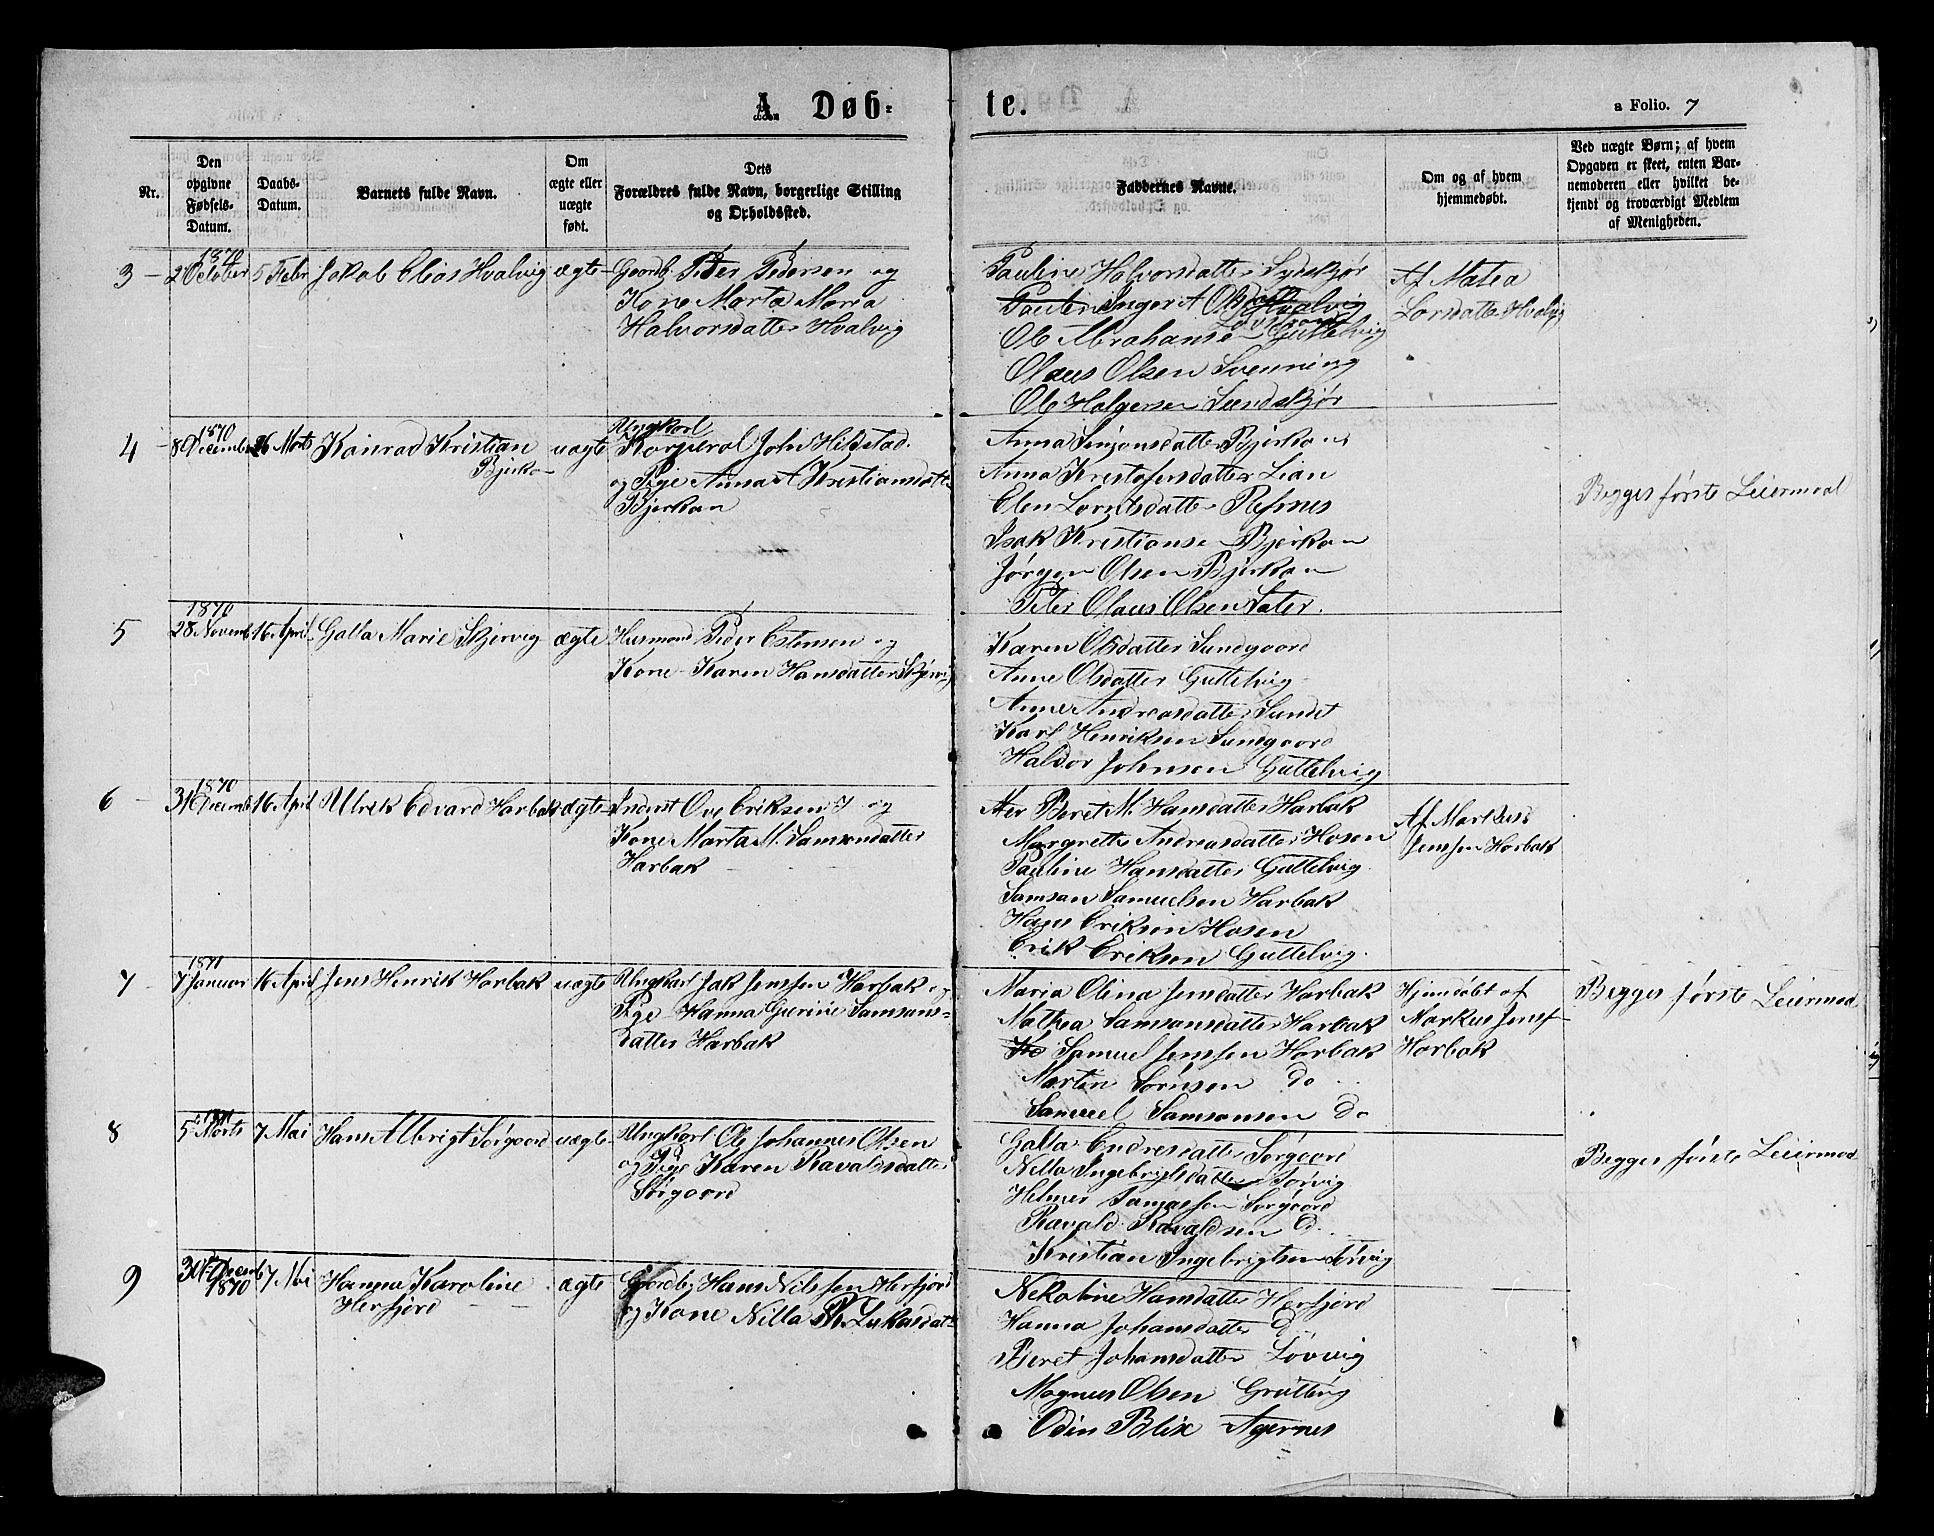 A. Døb-
te.
a Folio. 7
Nr.
Den opgivne Fødsels-Datum.
Daabs-Datum.
Barnets fulde Navn.
Om ægte eller uægte født.
Dets Forældres fulde Navn, borgerlige Stilling og Opholdssted.
Faddernes Navne.
Om og af hvem hjemmedøbt.
Ved uægte Børn; af hvem Opgaven er skeet, enten Barnemoderen eller hvilket bekjendt og troværdigt Medlem af Menigheden.
1870
3 - 2 October 5 Febr Jakob Elias Hvalvig ægte Gaardb. Peder Pedersen og
Kone Marta Maria
Halvorsdatter Hvalvig
Pauline Halvorsdatter Sydskjør
Inger A Olsdatter
Ole Abrahamse Guttelvig
Olaus Olsen Svenning
Ole Holgersen Sundskjør
Af Matea
Hvalvig
1870
4 - 8 December 26 Marts Konrad Kristian
Bjerka
uægte
Ungkarl
Korperal John Hekstad
og Pige Anna A Kristiansdatt
Bjerkan
Anna Simonsdatter Bjerkan
Anna Kristofersdatter Lian
Elen Lorntsdatter Refsnes
Isak Kristianse Bjerkan
Jørgen Olsen Bjerkan
Peter Olaus Olsen Sater.
Begges første Leiermaal
1870
5 28 Novemb 16 April Galla Marie Skjervig ægte Husmand Peder Estensen og
Kone Karen Hansdatter Skjervig
Karen Olsdatter Sundgaard
Anne Olsdatter Guttelvig
Anne Andreasdatter Sundet
Karl Henriksen Sundgaard
Haldor Johnsen Guttelvig
1870
6 - 31 Decemb 16 April Ulrik Edvard Harbak ægte Inderst Ove Eriksen og
Kone Marta M. Samsondatter
Harbak
Beret M. Hansdatter Harbak
Margrette Andreasdatter Hosen
Pauline Hansdatter Guttelvig
Samson Samuelsen Harbak
Hans Eriksen Hosen
Erik Eriksen Guttelvig.
Af Markus
Jenssen Harbak
1871
7 - 7 Januar 16 April Jens Henrik Harbak uægte Ungkarl Jak Jenssen Harbak og
Pige Hanna Gurine Samsons-
datter Harbak
Maria Olina Jensdatter Harbak
Mathea Samsonsdatter Harbak
Samuel Jenssen Harbak
Martin Sørnsen do
Samuel Samsonsen do
Hjemdøbt af
Markus Jens
Harbak
Begges første Leiermaal
1871
8 5 Marts 7 Mai Hans Albrigt Sørgaard uægte Ungkarl Ole Johannes Olsen
og Pige Karen Ravaldsdatter
Sørgaard
Galla Endresdatter Sørgaard
Nilla Ingebrigtsdatter Sørvig
Helmer Sørgaard
Ravald Ravaldsen do
Kristian Ingebrigtsen Sørvig
Begges første Leiermaal
9 30 Decemb 1870 7 Mai Hanna Karoline
Herfjord
ægte Gaardb. Hans Nilssen Herfjord
og Kone Nilla Lukasdat
Nekoline Hansdatter Herfjord
Hanna Johansdatter do
Beret Johansdatter Løvvig
Magnus Olsen Grøttvig
Odin Blix Agernes